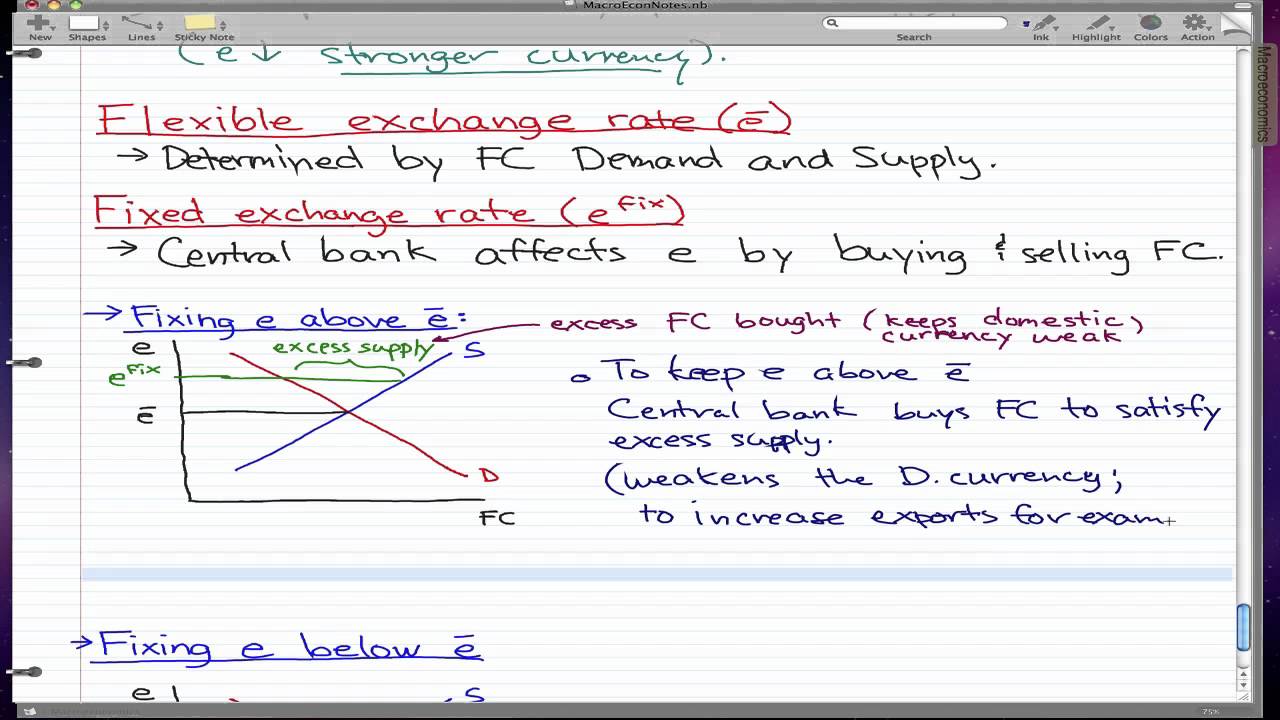 MacroEconNotes.nb
New Shapes Lines Sticky Note Search Ink Highlight Colors Action
Macroeconomics
(e↓ stronger currency).
Flexible exchange rate (ē)
→ Determined by FC Demand and Supply.
Fixed exchange rate (e^Fix)
→ Central bank affects e by buying & selling FC.
→ Fixing e above ē:
excess FC bought (keeps domestic)
currency weak
e
excess supply
S
e^Fix
ē
D
FC
o To keep e above ē
Central bank buys FC to satisfy
excess supply.
(weakens the D. currency;
to increase exports for exam
→ Fixing e below ē
e
S
Macroeconomics
75%